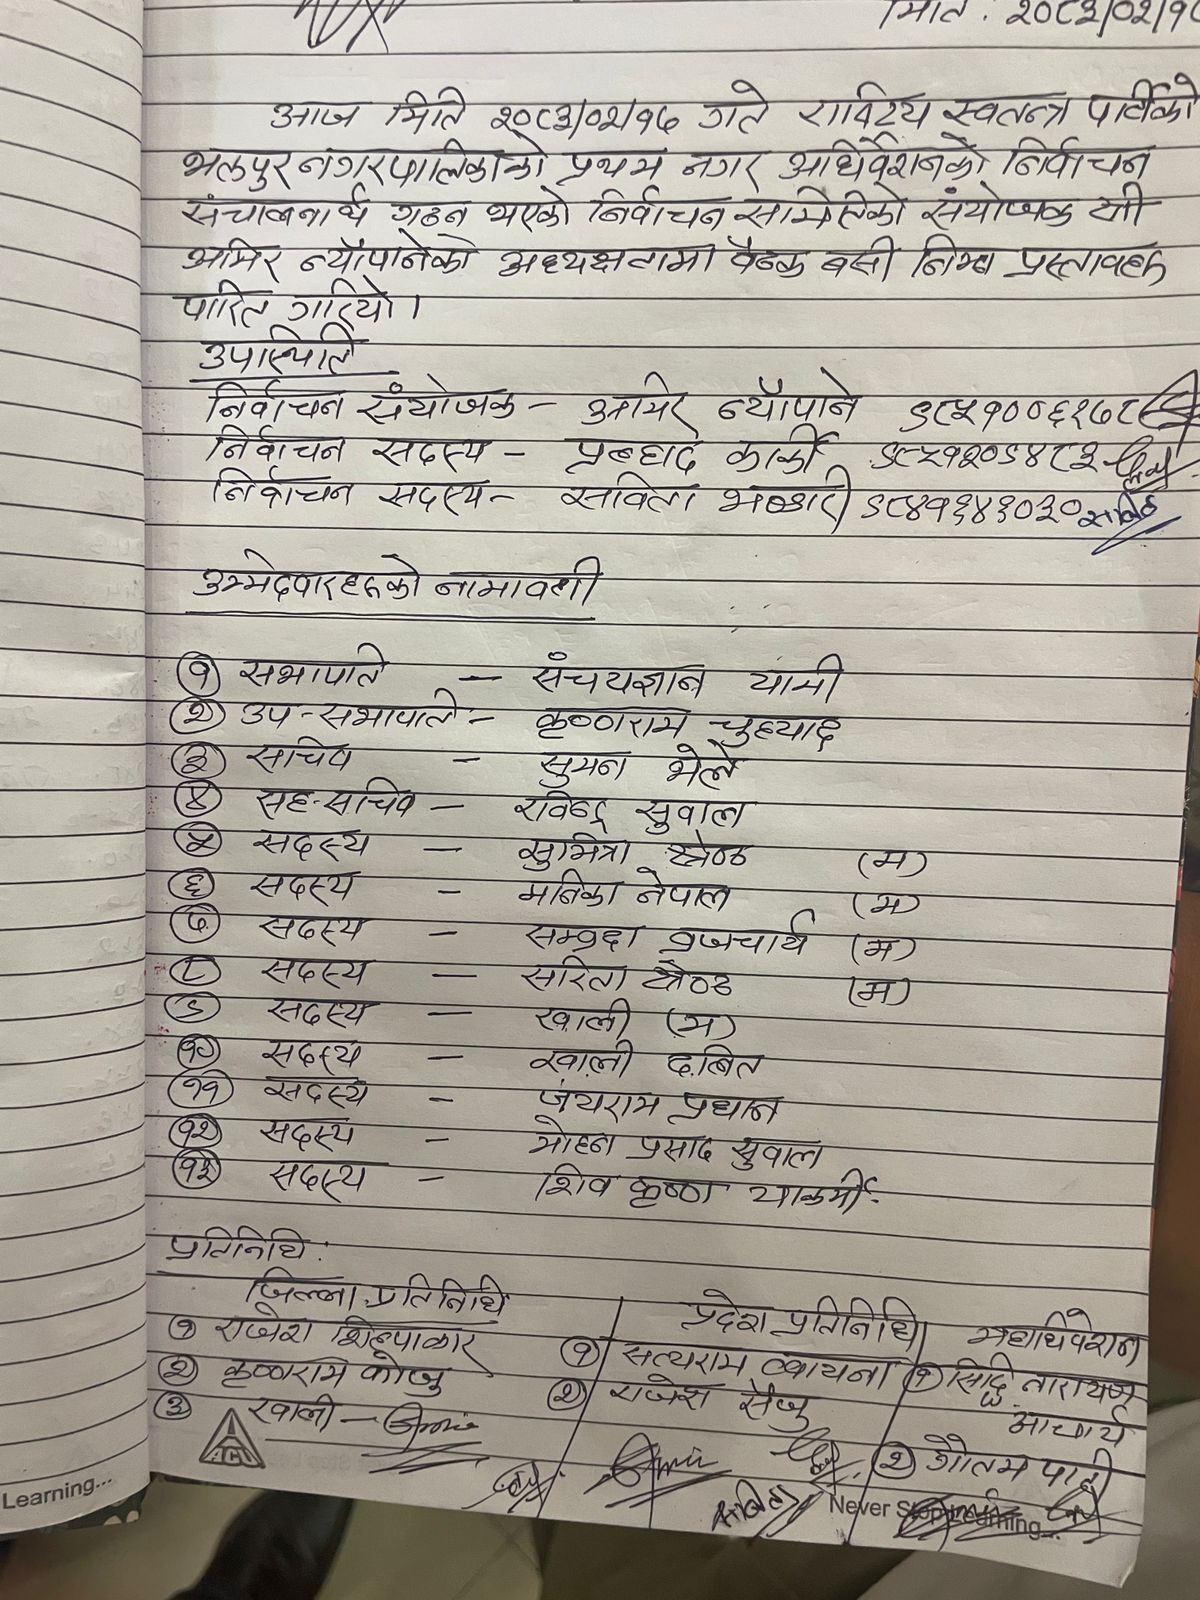 मिति : २०८३/०२/१८
आज मिति २०८३/०२/१७ गते राष्ट्रिय स्वतन्त्र पार्टीको
नगरपालिकाको प्रथम नगर अधिवेशनको निर्वाचन
संचालनार्थ गठन भएको निर्वाचन समितिको संयोजक श्री
अमिर न्यौपानेको अध्यक्षतामा बैठक बसी निम्न प्रस्तावहरु
पारित गरियो।
उपस्थिति
निर्वाचन संयोजक - अमिर न्यौपाने ९८५१००६१७८
निर्वाचन सदस्य - प्रल्हाद कार्की ९८५१२०९४८३
निर्वाचन सदस्य - सविता भण्डारी ९८४१६४१०३० सबिता
उम्मेदवारहरुको नामावली
१ सभापति - संचयज्ञान यामी
२ उप-सभापति - कृष्णराम
३ सचिव - सुमन भेले
४ सह-सचिव - रविन्द्र सुवाल
५ सदस्य - सुमित्रा श्रेष्ठ (म)
६ सदस्य - मनिका नेपाल (म)
७ सदस्य - सम्वृद्दा व्रजचार्य (म)
८ सदस्य - सरिता श्रेष्ठ (म)
९ सदस्य - खाली (म)
१० सदस्य - खाली दलित
११ सदस्य - जयराम प्रधान
१२ सदस्य - मोहन प्रसाद सुवाल
१३ सदस्य - शिव कृष्ण याकर्मी.
प्रतिनिधि :
जिल्ला प्रतिनिधि
१ राजेश शिल्पाकार
२ कृष्णराम कोजु
३ खाली -
प्रदेश प्रतिनिधि
१ सत्यराम
२ राजेश सैजु
महाधिवेशन
१ सिद्धि नारायण
आचार्य
२ गौतम
सबिता
Learning...
Never Stop Learning...